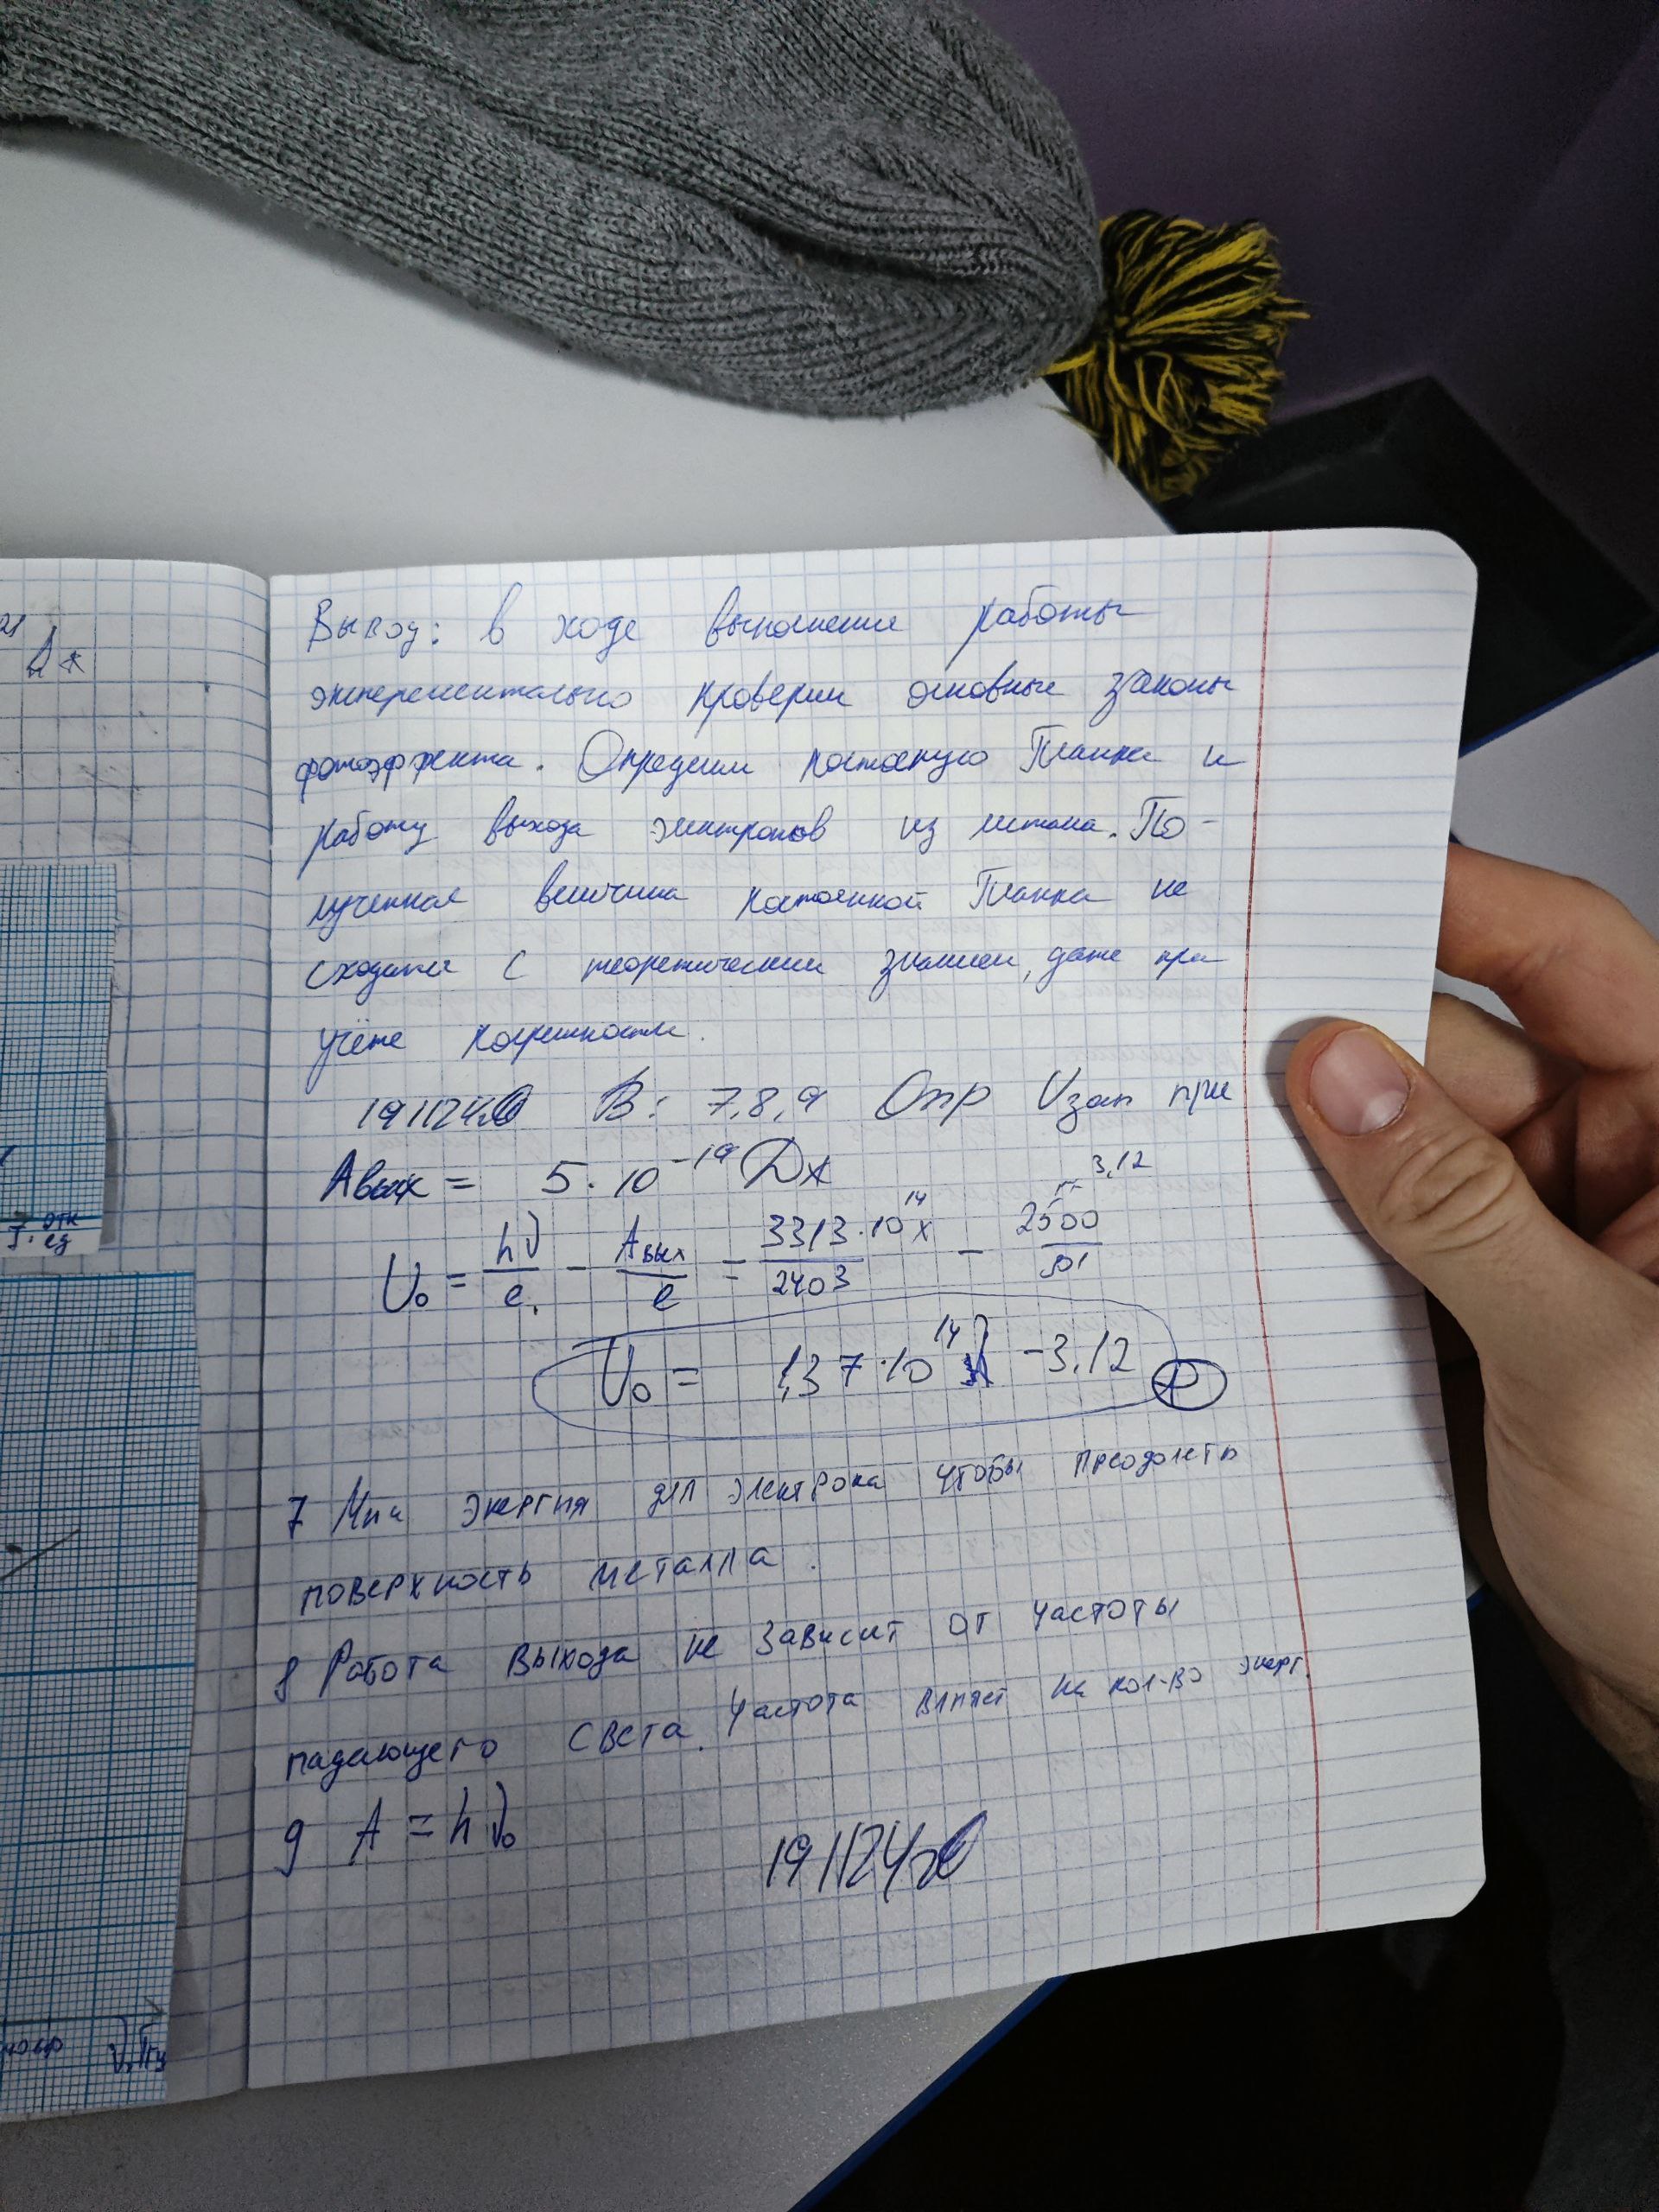 Вывод: в ходе выполнения работы
экспериментально проверили основные законы
фотоэффекта. Определили постоянную Планка и
работу выхода электронов из металла. По-
лученная величина постоянной Планка не
сходится с теоретическим значением, даже при
учёте погрешности.
191124 В: 7,8,9 Опр Uзап при
Aвых = 5·10⁻¹⁹ Дж
3,12
U₀ = hν/e - Aвых/e = 3313·10¹⁴x/2403 - 2500/801
U₀ = 1,37·10¹⁴ -3,12
7 Мин энергия для электрона чтобы преодолеть
поверхность металла.
8 Работа выхода не зависит от частоты
падающего света. Частота влияет на кол-во энерг.
9 A = hν₀
191124
21
Дж
ν, Тгц